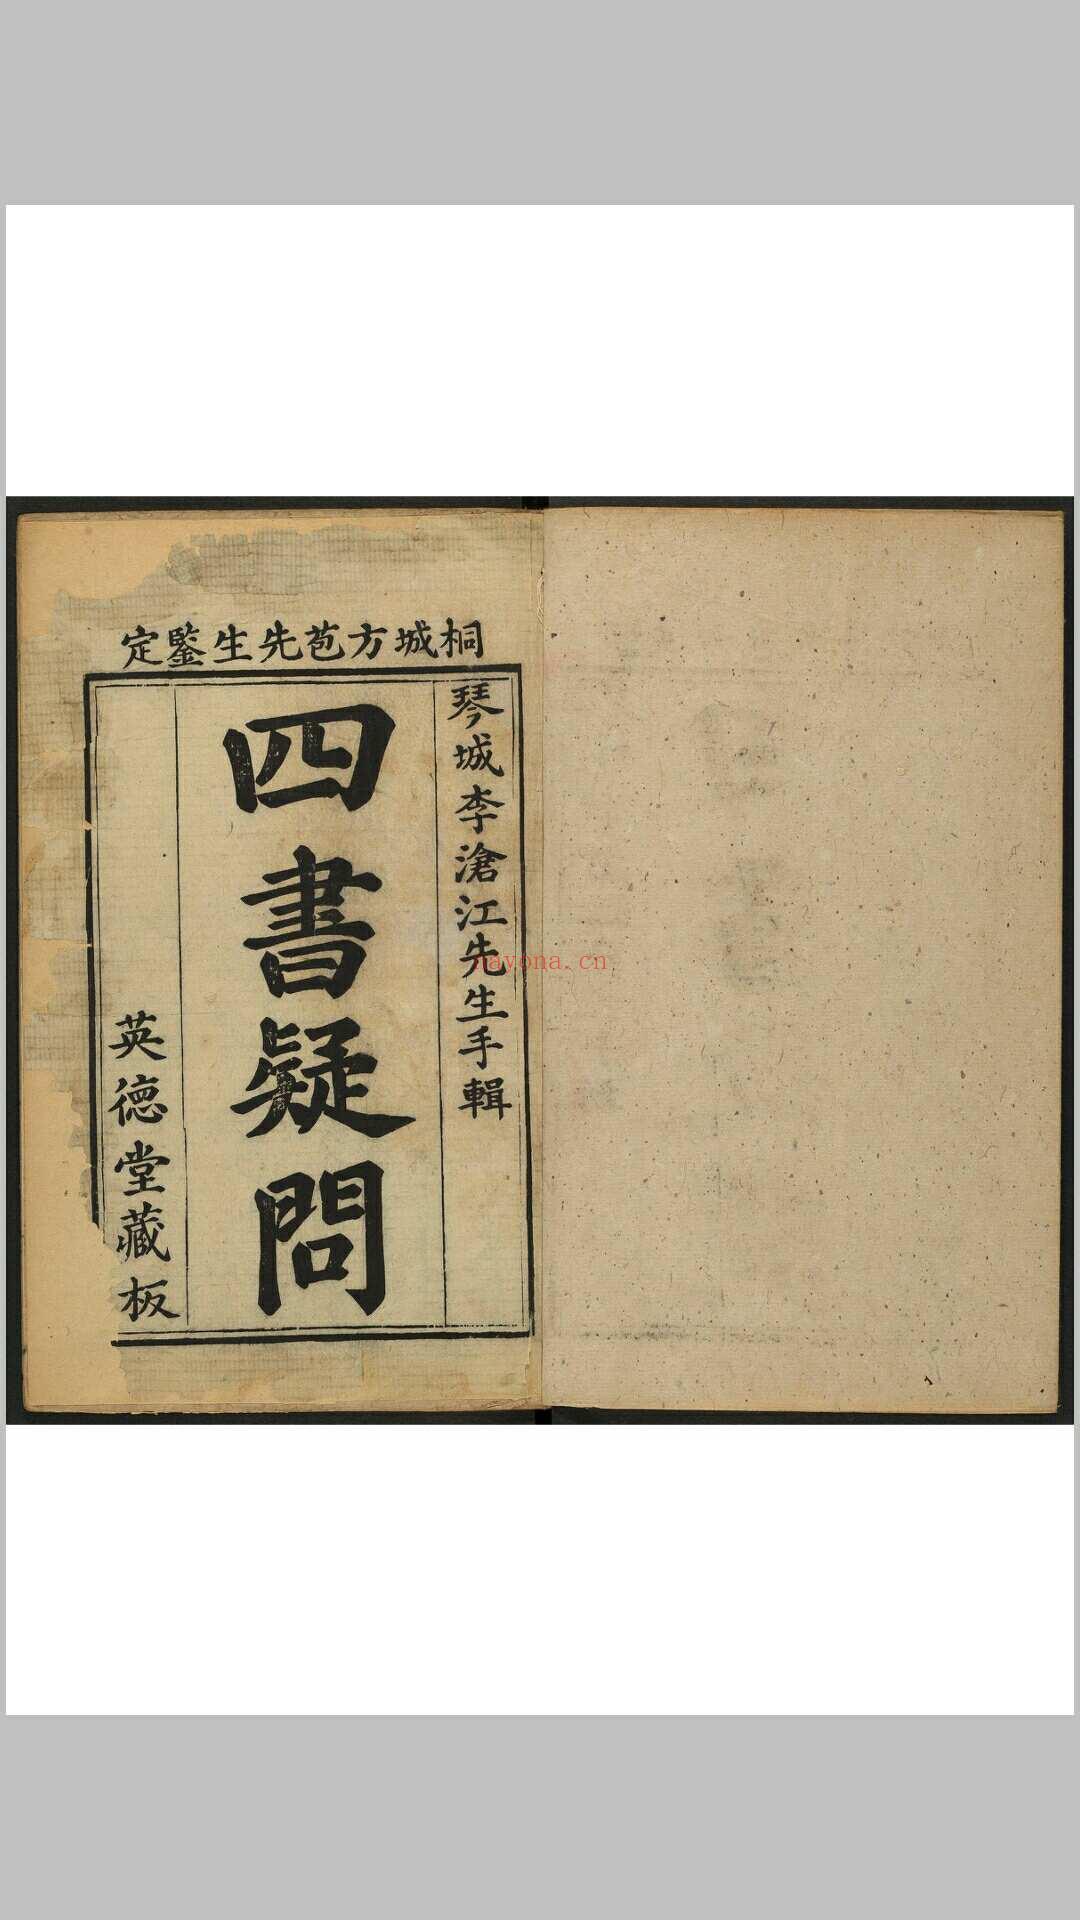 桐城方苞先生鑒定
琴城李滄江先生手輯
四書疑問
英德堂藏板
nayona.cn